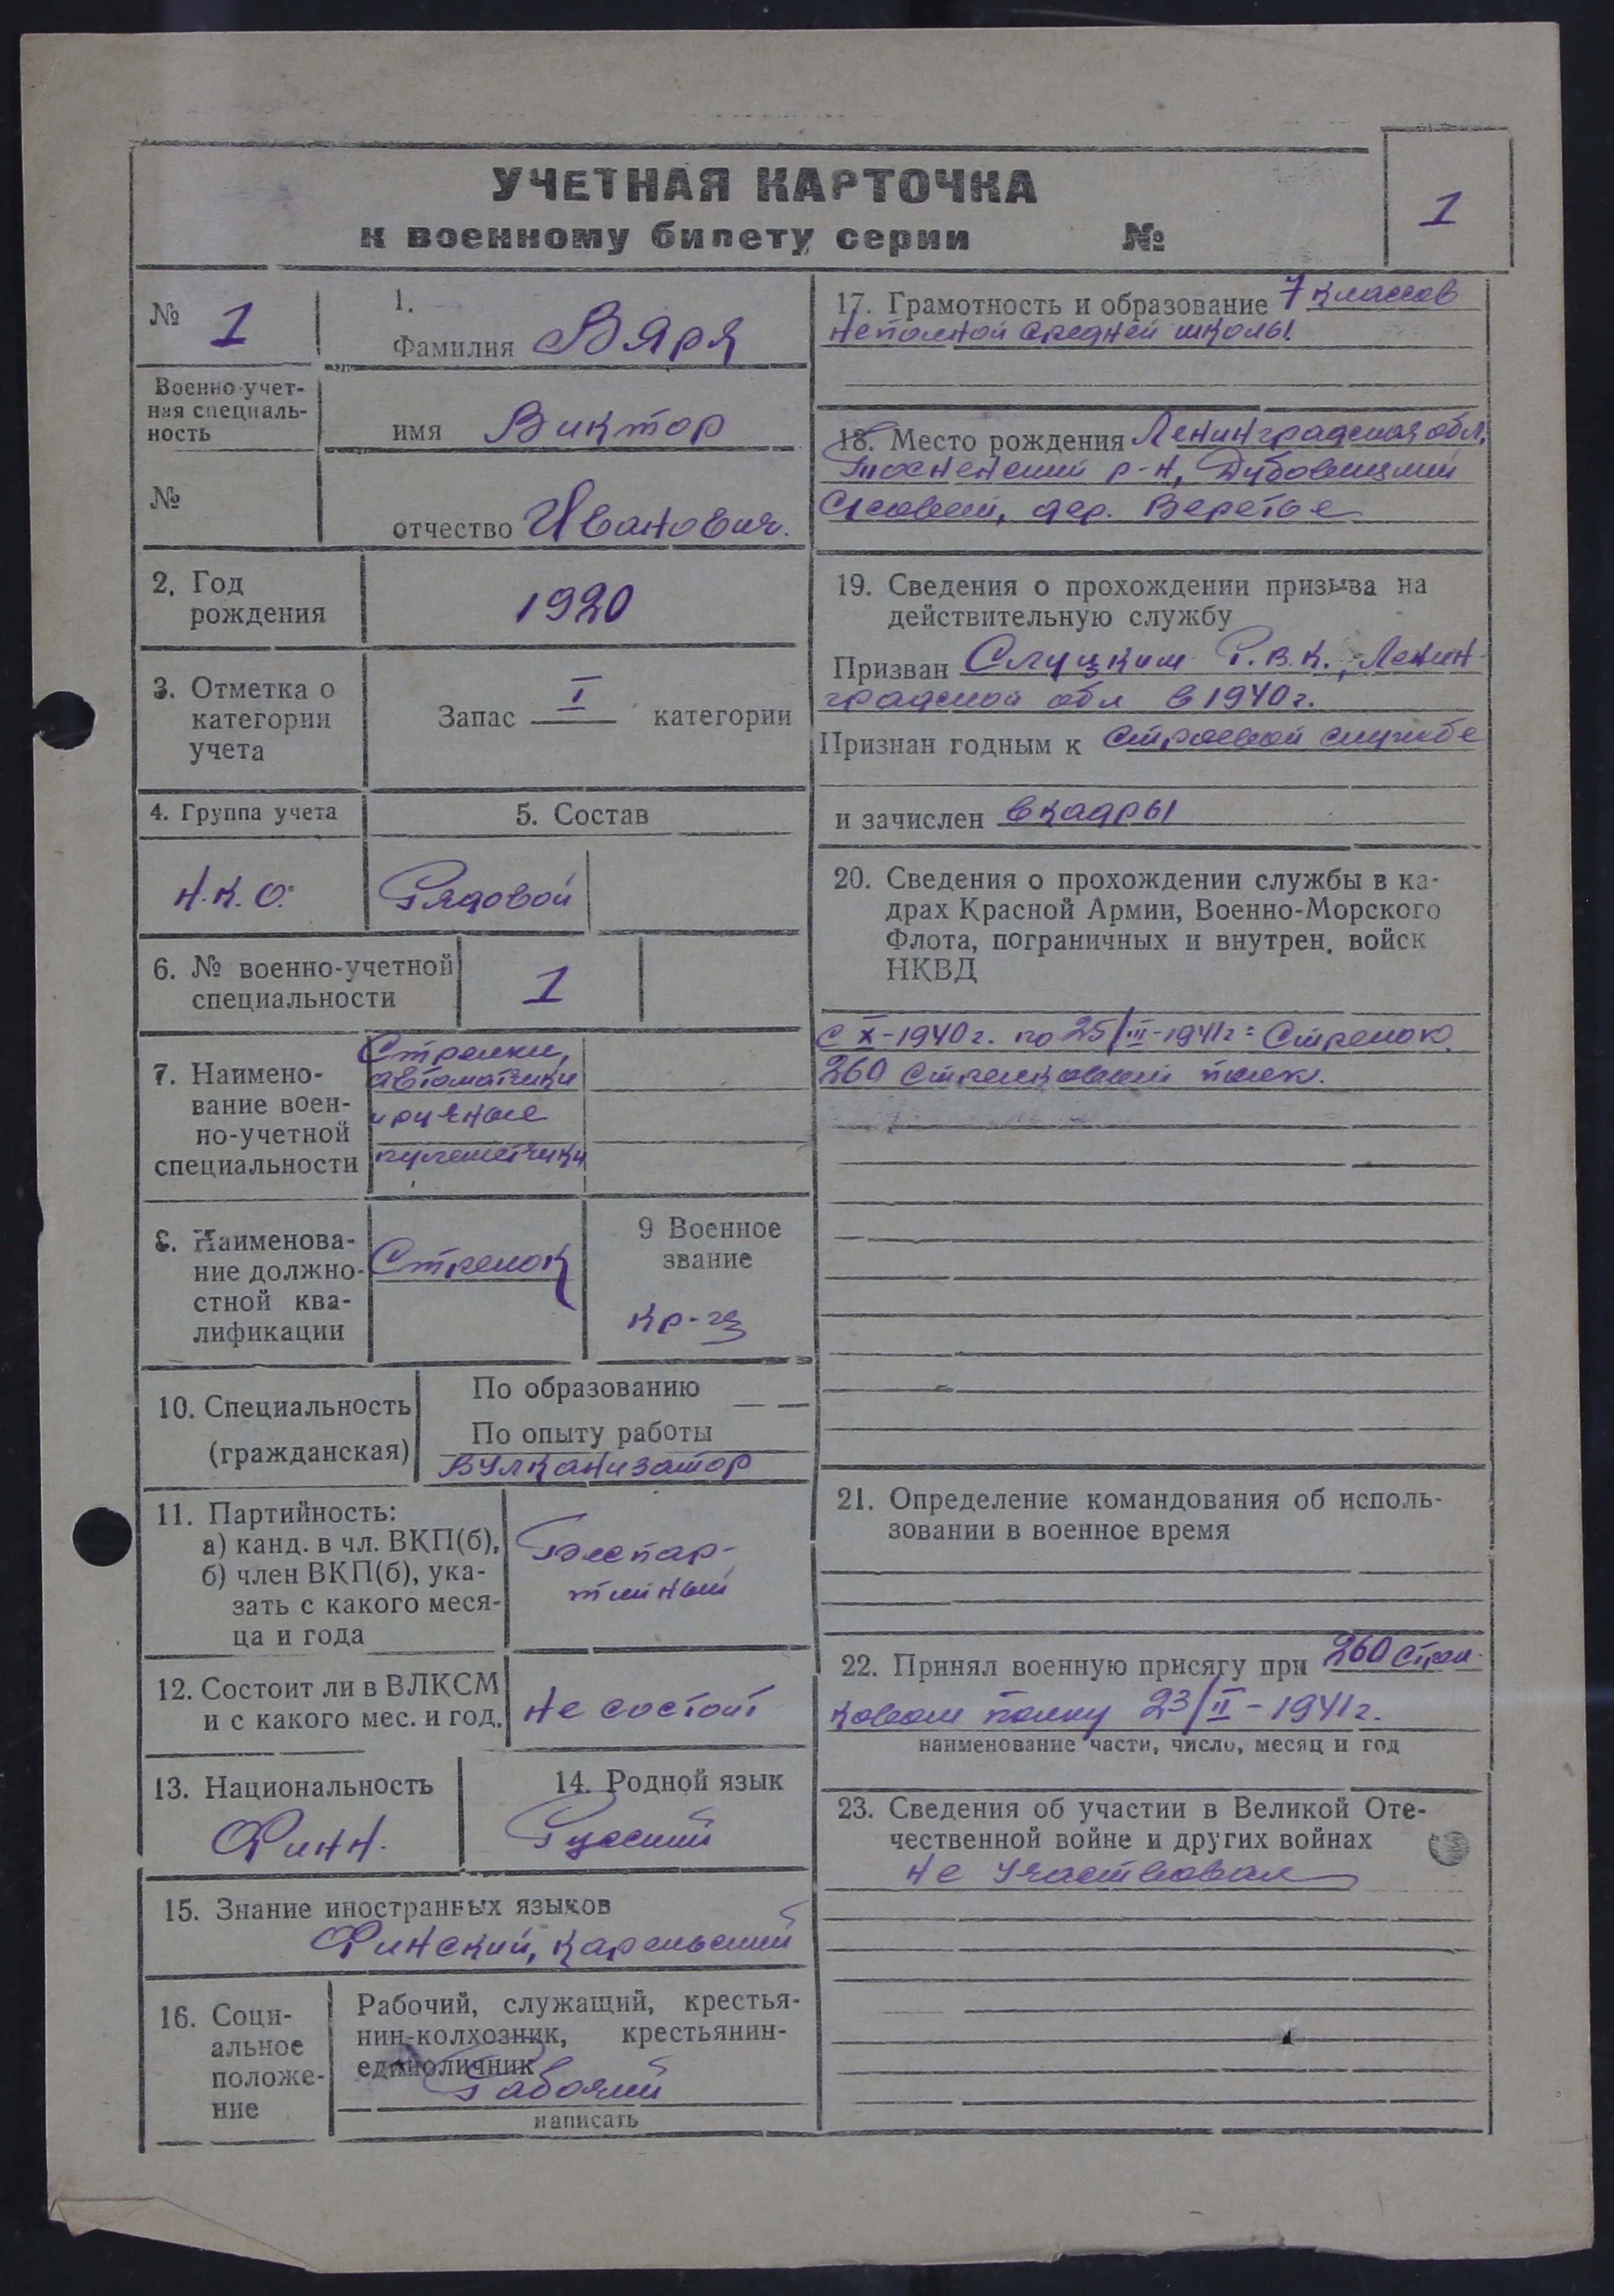 УЧЕТНАЯ КАРТОЧКА
к военному билету серии №
1
№ 1
Военно-учет-
ная специаль-
ность
№
1.
Фамилия Вяря
имя Виктор
отчество Иванович.
2. Год
рождения
1920
3. Отметка о
категории
учета
Запас I категории
4. Группа учета
5. Состав
Н.К.О.
Рядовой
6. № военно-учетной
специальности
1
7. Наимено-
вание воен-
но-учетной
специальности
Стрелки,
автоматчики
и ручные
пулеметчики
8. Наименова-
ние должно-
стной ква-
лификации
Стрелок
9 Военное
звание
Кр-ец
10. Специальность
(гражданская)
По образованию
По опыту работы
Вулканизатор
11. Партийность:
а) канд. в чл. ВКП(б),
б) член ВКП(б), ука-
зать с какого меся-
ца и года
Беспар-
тийный
12. Состоит ли в ВЛКСМ
и с какого мес. и год.
Не состоит
13. Национальность
Финн.
14. Родной язык
Русский
15. Знание иностранных языков
Финский, Карельский
16. Соци-
альное
положе-
ние
Рабочий, служащий, крестья-
нин-колхозник, крестьянин-
единоличник
Рабочий
написать
17. Грамотность и образование 7 классов
неполной средней школы.
18. Место рождения Ленинградская обл,
Тосненский р-н, Дубовицкий
С/совет, дер. Веретье
19. Сведения о прохождении призыва на
действительную службу
Призван Слуцким Р.В.К., Ленин-
градской обл в 1940 г.
Признан годным к строевой службе
и зачислен в кадры
20. Сведения о прохождении службы в ка-
драх Красной Армии, Военно-Морского
Флота, пограничных и внутрен. войск
НКВД
С X-1940 г. по 25/III-1941г = Стрелок.
260 Стрелковый полк.
21. Определение командования об исполь-
зовании в военное время
22. Принял военную присягу при 260 Стрел-
ковом полку 23/II-1941 г.
наименование части, число, месяц и год
23. Сведения об участии в Великой Оте-
чественной войне и других войнах
Не участвовал